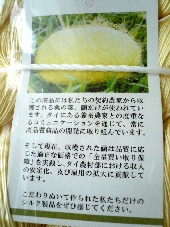 この商品には私たちの契約農家から収
穫される糸の繭、繭だけが使われていま
す。タイにある養蚕農家との度重な
るコミュニケーションを通じて、常に
高品質商品の開発に取り組んでいます。
そして現在、収穫された繭は品質に応
じた適正な価格での「全量買い取り保
障」を実践しタイ農村部における収入
の安定化、及び雇用の拡大に貢献して
います。
こだわりぬいて作られた私たちだけの
シルク製品をぜひ感じてください。